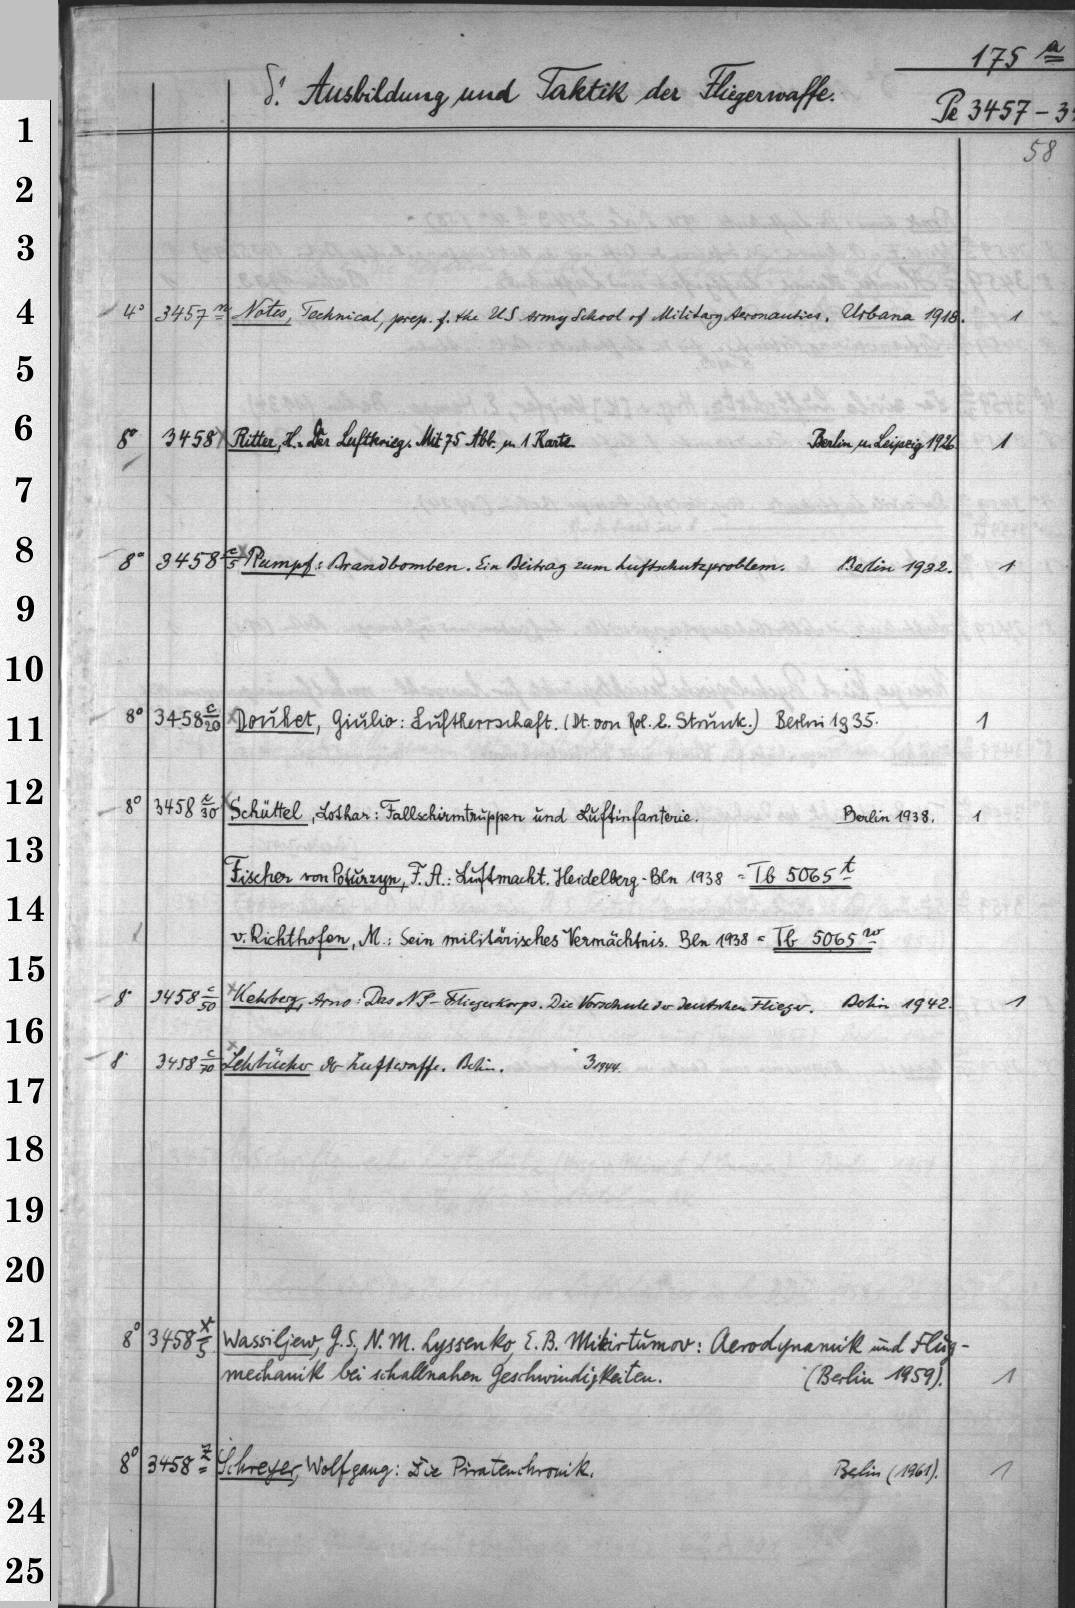 175 a
δ. Ausbildung und Taktik der Fliegerwaffe.
Pe 3457 - 3
58
1
2
3
4
4° 3457 m Notes, Technical, prep. f. the US Army School of Military Aeronautics. Urbana 1918. 1
5
6
8° 3458 Ritter, H.: Der Luftkrieg. Mit 75 Abb. u. 1 Karte Berlin u. Leipzig 1926 1
7
8
8° 3458 c/5 Rumpf: Brandbomben. Ein Beitrag zum Luftschutzproblem. Berlin 1932. 1
9
10
11
8° 3458 c/20 Douhet, Giulio: Luftherrschaft. (Dt. von Rol. E. Strunk.) Berlin 1935. 1
12
8° 3458 c/30 Schüttel, Lothar: Fallschirmtruppen und Luftinfanterie. Berlin 1938. 1
13
Fischer von Poturzyn, F. A.: Luftmacht. Heidelberg-Bln 1938 = Tb 5065 t
14
v. Richthofen, M.: Sein militärisches Vermächtnis. Bln 1938 = Tb 5065 w
15
8° 3458 c/50 Kehrberg, Arno: Das NS-Fliegerkorps. Die Vorschule der deutschen Flieger. Berlin 1942. 1
16
8° 3458 c/70 Lehrbücher der Luftwaffe. Berlin. 3 1944.
17
18
19
20
21
8° 3458 x/5 Wassiljew, G. S., N. M. Lyssenko, E. B. Mikirtumov: Aerodynamik und Flug-
22
mechanik bei schallnahen Geschwindigkeiten. (Berlin 1959). 1
23
8° 3458 z Schreyer, Wolfgang: Die Piratenchronik. Berlin (1961). 1
24
25